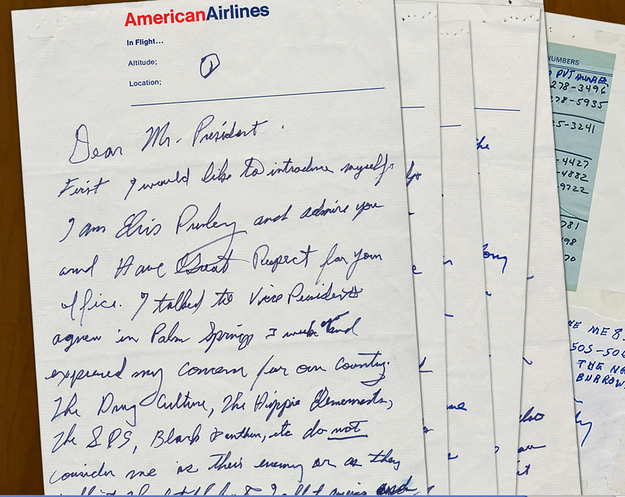 AmericanAirlines
In Flight...
Altitude;
Location;
①
Dear Mr. President.
First I would like to introduce myself.
I am Elvis Presley and admire you
and Have Great Respect for your
office. I talked to Vice President
agnew in Palm Springs 3 weeks ago and
expressed my concern for our country.
The Drug Culture, The Hippie Elements,
The SDS, Black Panthers, etc do not
consider me as their enemy or as they
call it The Establishment. I call it america and
the
NUMBERS
PVT NUMBER
278-3496
278-5935
5-3241
-4427
-4882
9722
781
98
70
ME 8
505-50
THE